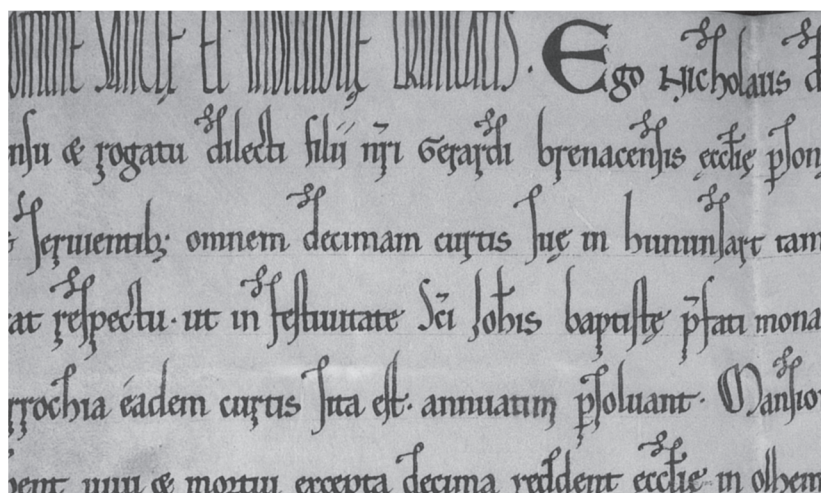 omine sancte et individue trinitatis. Ego Nicholaus d
nsu & rogatu dilecti filii nr̄i Gerardi brenacensis ęccl̄ię p̄son
seruientib; omnem decimam curtis suę in hununsart tam
at respectu. ut in festiuitate Sc̄i Joh̄is baptistę p̄fati mona
rrochia eadem curtis sita est. annuatim p̄soluant. Mansio
bent uiui & mortui excepta decima reddent ęccl̄ię in olhem